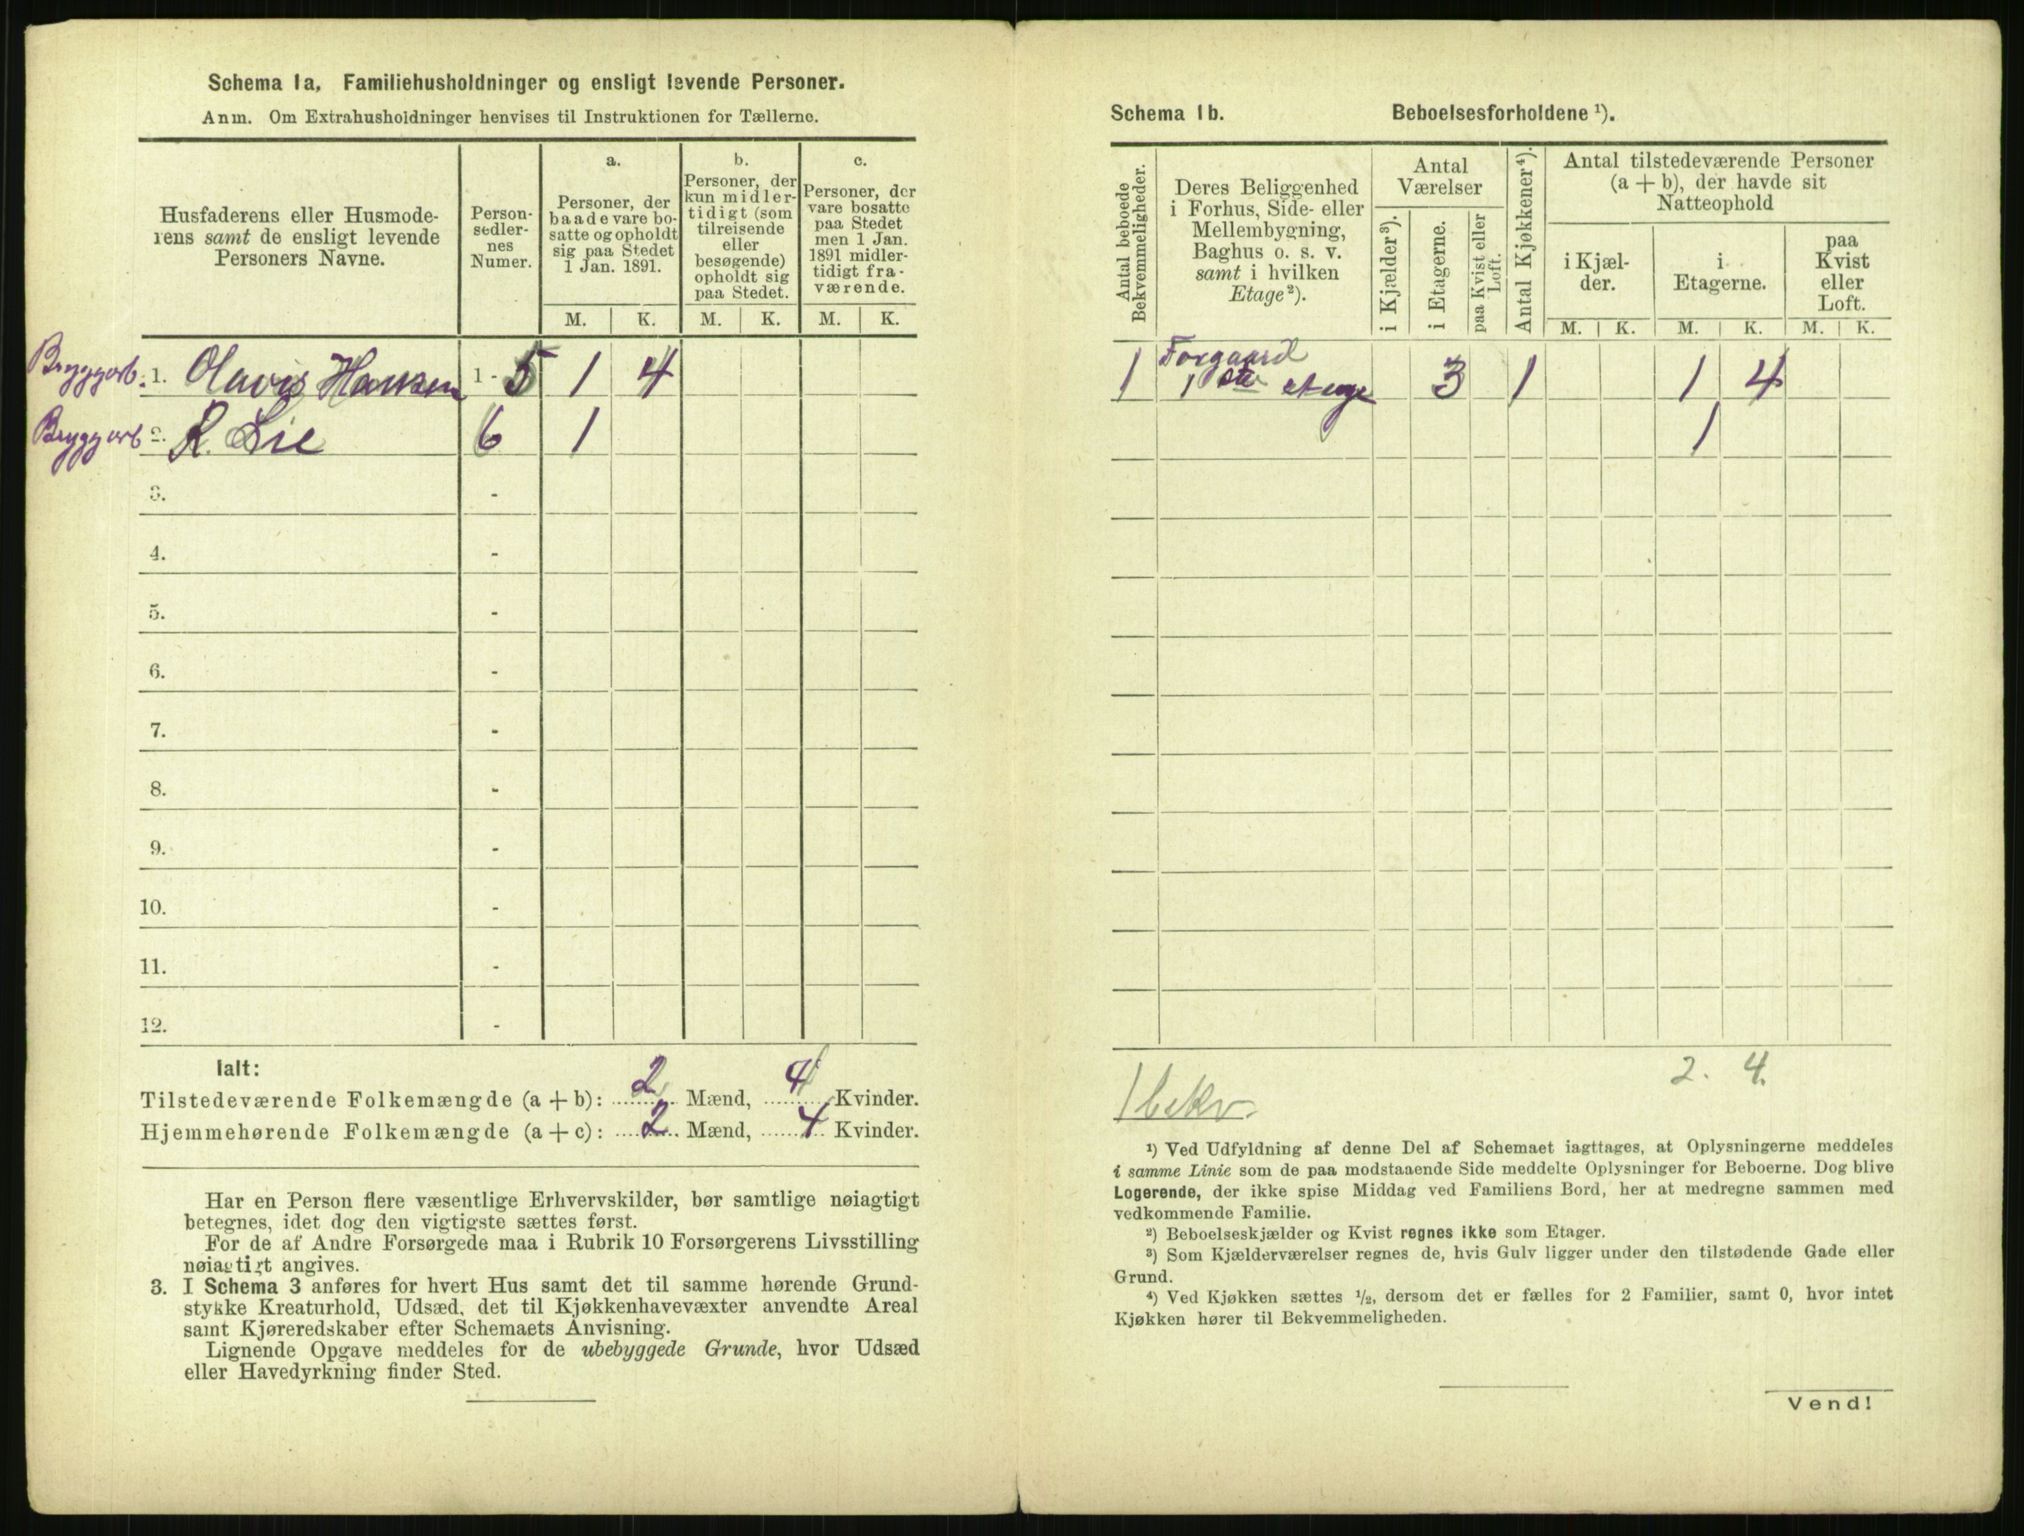 Schema 1a. Familiehusholdninger og ensligt levende Personer.
Anm. Om Extrahusholdninger henvises til Instruktionen for Tællerne.
Husfaderens eller Husmoderens samt de ensligt levende Personers Navne.
Personsedlernes Numer.
a.
Personer, der baade vare bosatte og opholdt sig paa Stedet 1 Jan. 1891.
b.
Personer, der kun midlertidigt (som tilreisende eller besøgende) opholdt sig paa Stedet.
c.
Personer, der vare bosatte paa Stedet men 1 Jan. 1891 midlertidigt fraværende.
M. K. M. K. M. K.
Bryggarb. 1. Olavis Hansen 1 - 5 1 4
Bryggarb 2. R. Lie 6 1
3. -
4. -
5. -
6. -
7. -
8. -
9. -
10. -
11. -
12. -
Ialt:
Tilstedeværende Folkemængde (a + b): 2 Mænd, 4 Kvinder.
Hjemmehørende Folkemængde (a + c): 2 Mænd, 4 Kvinder.
Har en Person flere væsentlige Erhvervskilder, bør samtlige nøiagtigt
betegnes, idet dog den vigtigste sættes først.
For de af Andre Forsørgede maa i Rubrik 10 Forsørgerens Livsstilling
nøiagtigt angives.
3. I Schema 3 anføres for hvert Hus samt det til samme hørende Grund-
stykke Kreaturhold, Udsæd, det til Kjøkkenhavevæxter anvendte Areal
samt Kjøreredskaber efter Schemaets Anvisning.
Lignende Opgave meddeles for de ubebyggede Grunde, hvor Udsæd
eller Havedyrkning finder Sted.
Schema 1b. Beboelsesforholdene ¹).
Antal beboede Bekvemmeligheder.
Deres Beliggenhed i Forhus, Side- eller Mellembygning, Baghus o. s. v. samt i hvilken Etage²).
Antal Værelser
i Kjælder³).
i Etagerne.
paa Kvist eller Loft.
Antal Kjøkkener⁴).
Antal tilstedeværende Personer (a + b), der havde sit Natteophold
i Kjælder.
i Etagerne.
paa Kvist eller Loft.
M. K. M. K. M. K.
1 Forgaard 1 ste etage 3 1 1 4
1
2. 4.
1 bekv.
¹) Ved Udfyldning af denne Del af Schemaet iagttages, at Oplysningerne meddeles
i samme Linie som de paa modstaaende Side meddelte Oplysninger for Beboerne. Dog blive
Logerende, der ikke spise Middag ved Familiens Bord, her at medregne sammen med
vedkommende Familie.
²) Beboelseskjælder og Kvist regnes ikke som Etager.
³) Som Kjælderværelser regnes de, hvis Gulv ligger under den tilstødende Gade eller
Grund.
⁴) Ved Kjøkken sættes ½, dersom det er fælles for 2 Familier, samt 0, hvor intet
Kjøkken hører til Bekvemmeligheden.
Vend!